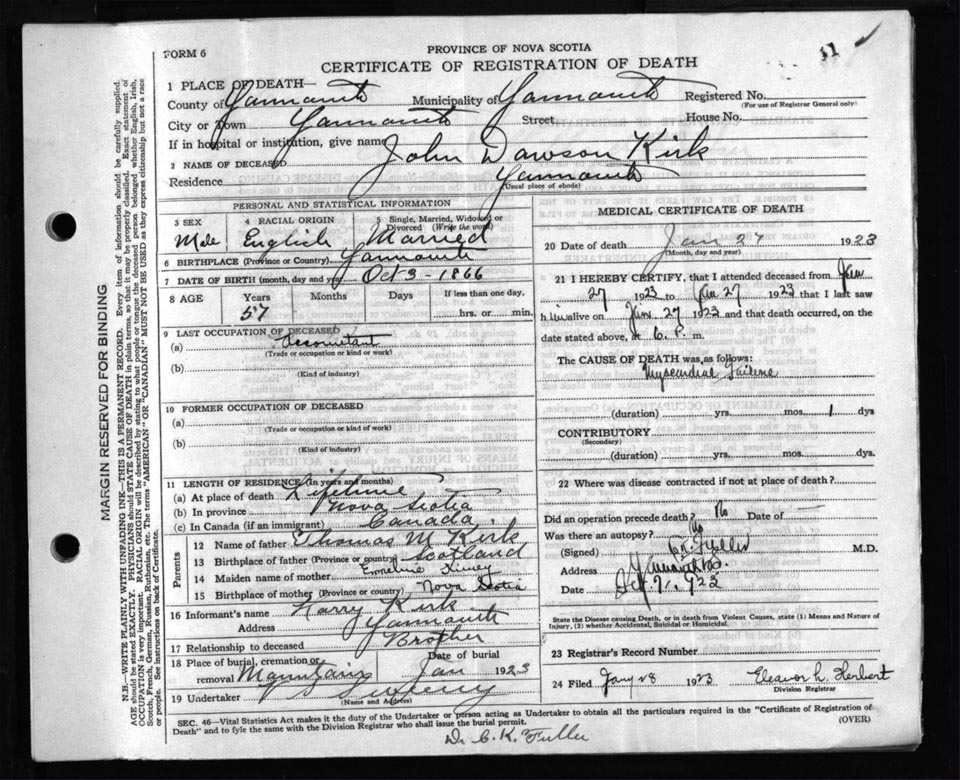 FORM 6
PROVINCE OF NOVA SCOTIA
CERTIFICATE OF REGISTRATION OF DEATH
1 PLACE OF DEATH
County of Yarmouth Municipality of Yarmouth Registered No.
(For use of Registrar General only)
City or Town Yarmouth Street House No.
If in hospital or institution, give name
2 NAME OF DECEASED John Dawson Kirk
Residence Yarmouth
(Usual place of abode)
PERSONAL AND STATISTICAL INFORMATION
3 SEX 4 RACIAL ORIGIN 5 Single, Married, Widowed or Divorced (Write the word)
Male English Married
6 BIRTHPLACE (Province or Country) Yarmouth
7 DATE OF BIRTH (month, day and year) Oct 3 - 1866
8 AGE Years Months Days If less than one day,
57 hrs. or min.
9 LAST OCCUPATION OF DECEASED
(a) Accountant
(Trade or occupation or kind or work)
(b)
(Kind of industry)
10 FORMER OCCUPATION OF DECEASED
(a)
(Trade or occupation or kind of work)
(b)
(Kind of industry)
11 LENGTH OF RESIDENCE (In years and months)
(a) At place of death Lifetime
(b) In province Nova Scotia
(c) In Canada (if an immigrant) Canada
Parents
12 Name of father Thomas M Kirk
13 Birthplace of father (Province or country) Scotland
14 Maiden name of mother Emeline
15 Birthplace of mother (Province or country) Nova Scotia
16 Informant's name Harry Kirk
Address Yarmouth
17 Relationship to deceased Brother
18 Place of burial, cremation or removal Mountain Date of burial Jan 1923
19 Undertaker V S Sweeny
(Name and Address)
MEDICAL CERTIFICATE OF DEATH
20 Date of death Jan 27 1923
(Month, day and year)
21 I HEREBY CERTIFY, that I attended deceased from Jan
27 1923 to Jan 27 1923 that I last saw
h im alive on Jan. 27 1923 and that death occurred, on the
date stated above, at 6. P. m.
The CAUSE OF DEATH was as follows:
Myocardial Failure
(duration) yrs. mos. 1 dys
CONTRIBUTORY
(Secondary)
(duration) yrs. mos. dys.
22 Where was disease contracted if not at place of death?
Did an operation precede death? No Date of —
Was there an autopsy? No
(Signed) C.K. Fuller M.D.
Address Yarmouth N.S.
Date 1923
State the Disease causing Death, or in death from Violent Causes, state (1) Means and Nature of
Injury, (2) whether Accidental, Suicidal or Homicidal.
23 Registrar's Record Number
24 Filed Jany 28 1923 Eleanor L. Herbert
Division Registrar
SEC. 46—Vital Statistics Act makes it the duty of the Undertaker or person acting as Undertaker to obtain all the particulars required in the "Certificate of Registration of
Death" and to fyle the same with the Division Registrar who shall issue the burial permit.
(OVER)
Dr C. K. Fuller
MARGIN RESERVED FOR BINDING
N.B.—WRITE PLAINLY WITH UNFADING INK—THIS IS A PERMANENT RECORD. Every item of information should be carefully supplied.
AGE should be stated EXACTLY. PHYSICIANS should STATE CAUSE OF DEATH in plain terms, so that it may be properly classified. Exact statement of
OCCUPATION is very important. RACIAL ORIGIN will be described by stating to what people or tongue the deceased person belonged whether English, Irish,
Scotch, French, German, Russian, Ruthenian, etc. The terms "AMERICAN" OR "CANADIAN" MUST NOT BE USED as they express citizenship but not a race
or people. See instructions on back of Certificate.